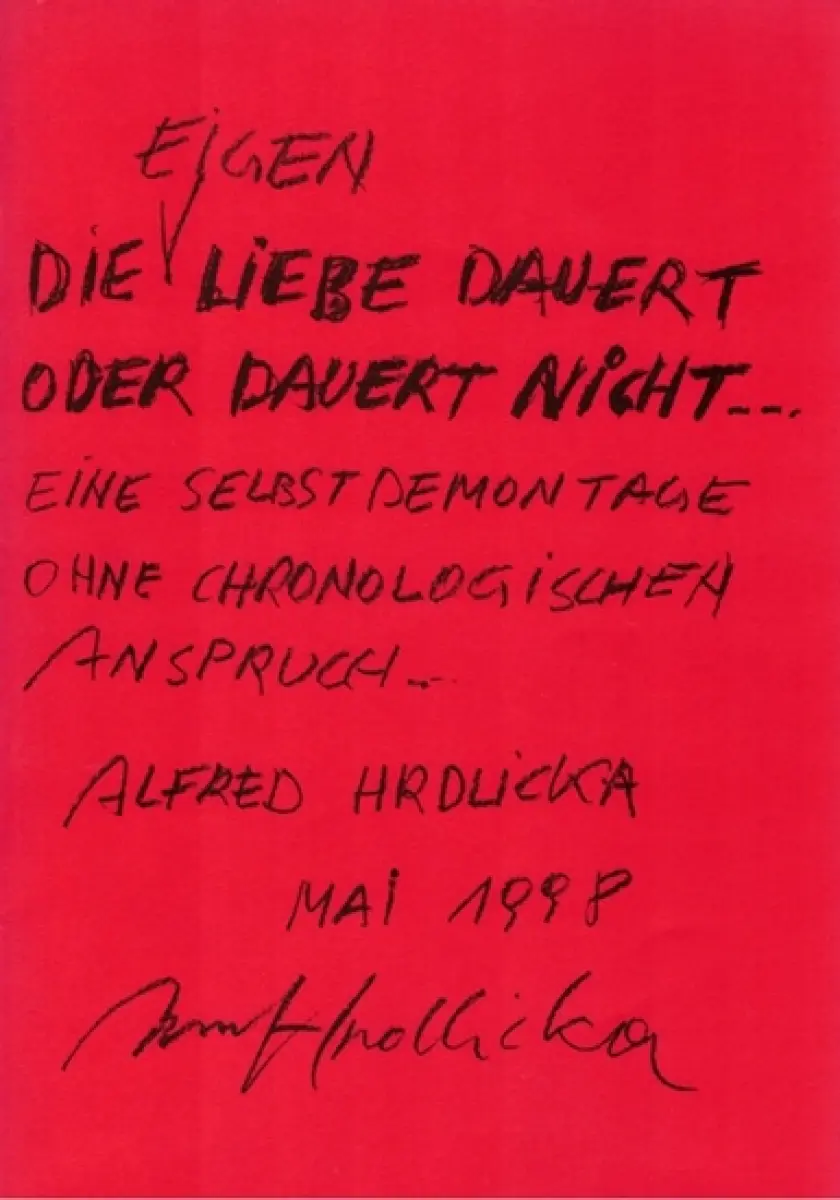 EIGEN
DIE LIEBE DAUERT
ODER DAUERT NICHT...
EINE SELBSTDEMONTAGE
OHNE CHRONOLOGISCHEN
ANSPRUCH...
ALFRED HRDLICKA
MAI 1998
Hrdlicka